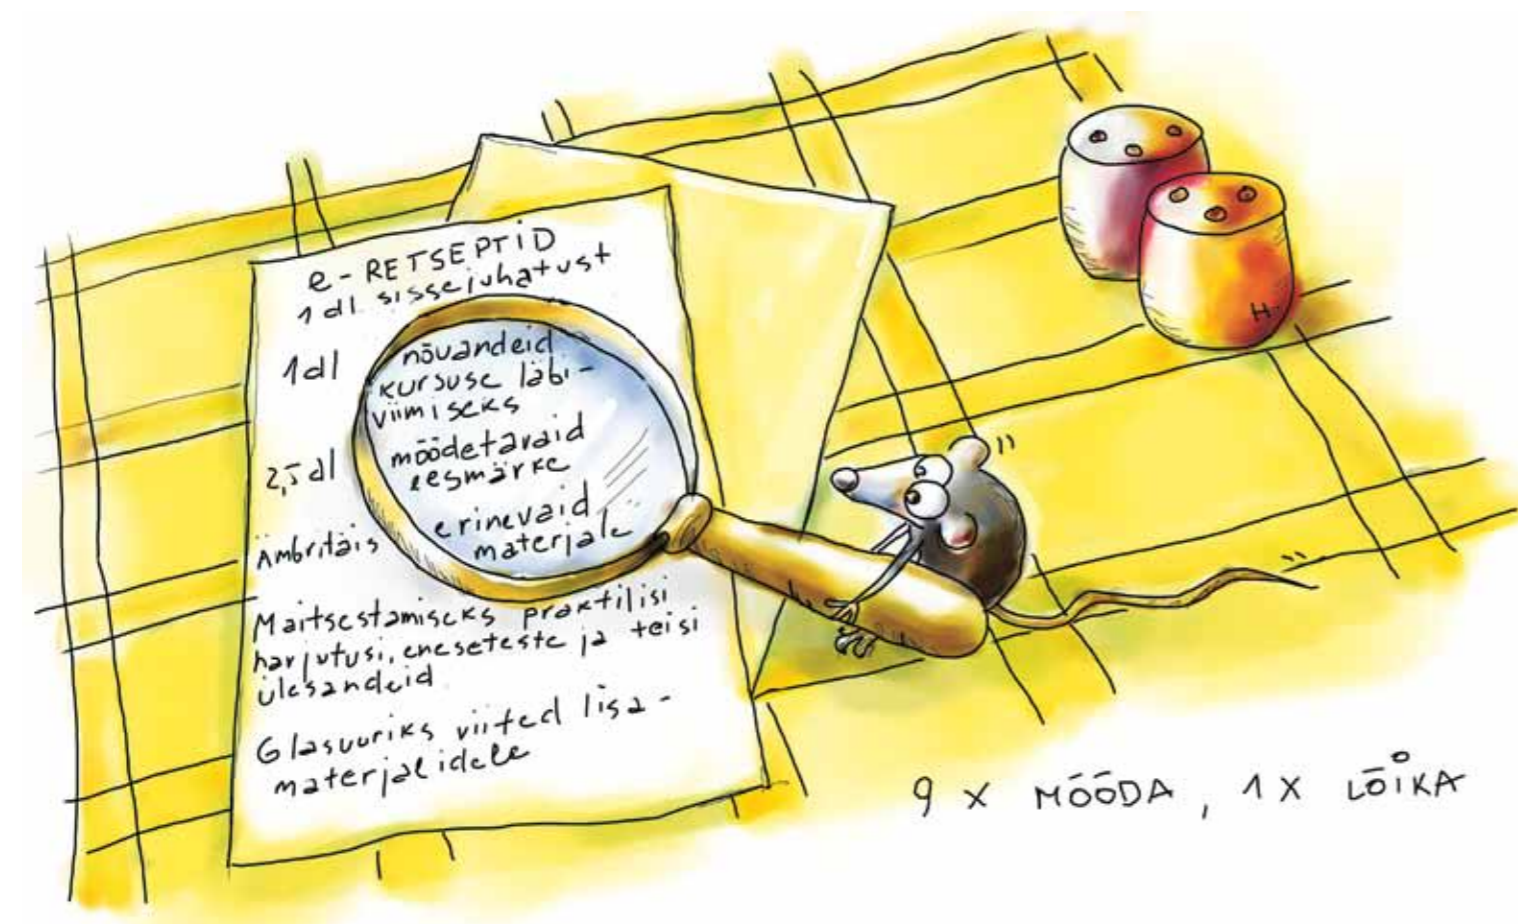 e-RETSEPTID
1 dl sissejuhatust
1 dl nõuandeid
kursuse läbi-
viimiseks
2,5 dl mõõdetavaid
eesmärke
Ämbritäis erinevaid
materjale
Maitsestamiseks praktilisi
harjutusi, eneseteste ja teisi
ülesandeid
Glasuuriks viited lisa-
materjalidele
H.
9 X MÕÕDA, 1 X LÕIKA